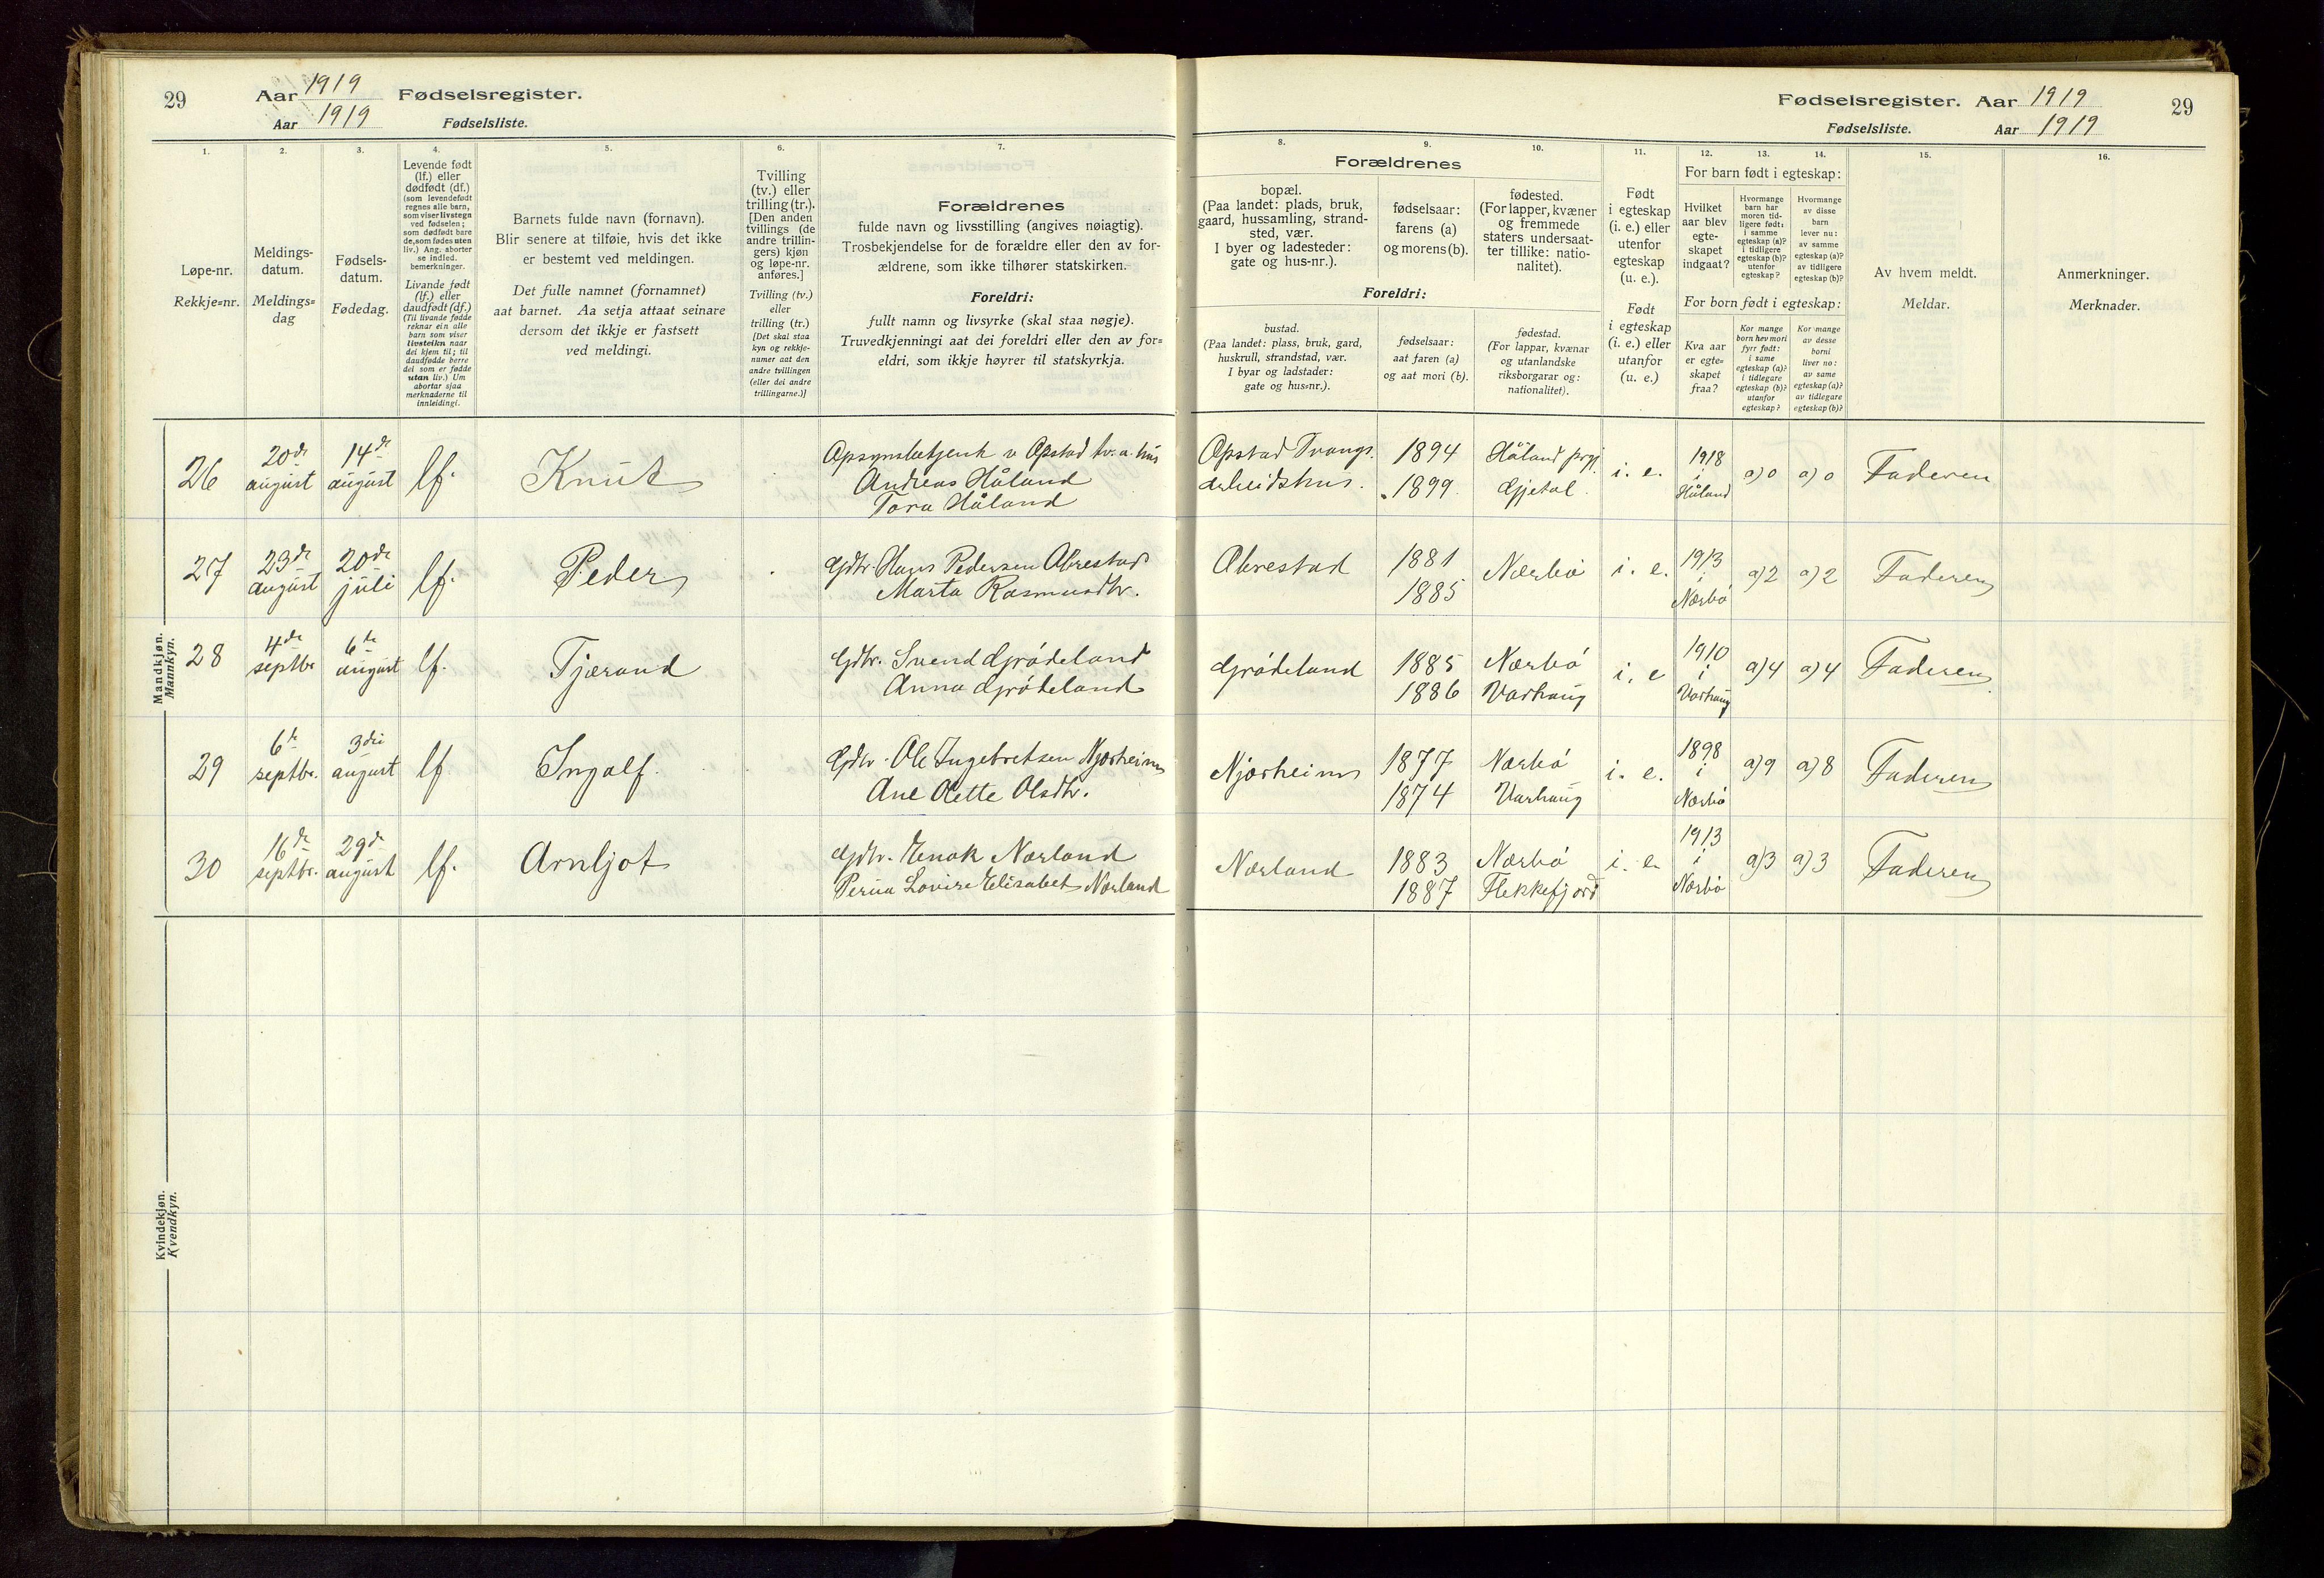 29 Aar 1919 Fødselsregister.
Aar 1919 Fødselsliste.
1.
Løpe-nr.
Rekkje=nr.
2.
Meldings-
datum.
Meldings=
dag
3.
Fødsels-
datum.
Fødedag.
4.
Levende født
(lf.) eller
dødfødt (df.)
(som levendefødt
regnes alle barn,
som viser livstegn
ved fødselen;
som dødfødt bare
de, som fødes uten
liv.) Ang. aborter
se indled.
bemerkninger.
Livande født
(lf.) eller
daudfødt (df.)
(Til livande fødde
reknar ein alle
born som viser
livsteikn naar
dei kjem til; til
daudfødde berre
dei som er fødde
utan liv.) Um
abortar sjaa
merknaderne til
innleidingi.
5.
Barnets fulde navn (fornavn).
Blir senere at tilføie, hvis det ikke
er bestemt ved meldingen.
Det fulle namnet (fornamnet)
aat barnet. Aa setja attaat seinare
dersom det ikkje er fastsett
ved meldingi.
6.
Tvilling
(tv.) eller
trilling (tr.).
[Den anden
tvillings (de
andre trillin-
gers) kjøn
og løpe-nr.
anføres.]
Tvilling (tv.)
eller
trilling (tr.)
[Det skal staa
kyn og rekkje-
numer aat den
andre tvillingen
(eller dei andre
trillingarne.)]
7.
Forældrenes
fulde navn og livsstilling (angives nøiagtig).
Trosbekjendelse for de forældre eller den av for-
ældrene, som ikke tilhører statskirken.
Foreldri:
fullt namn og livsyrke (skal staa nøgje).
Truvedkjenningi aat dei foreldri eller den av for=
eldri, som ikkje høyrer til statskyrkja.
Mandkjøn.
Mannkyn.
26 20de august 14de august lf. Knut
Opsynsbetjent v Opstad tv. a. hus
Andreas Håland
Tora Håland
27 23de august 20de juli lf. Peder
Gdbr. Hans Pedersen Obrestad
Marta Rasmusdtr.
28 4de septbr 6te august lf. Tjærand
Gdbr. Svend Grødeland
Anna Grødeland
29 6te septbr. 3die august lf. Ingolf.
Gdbr. Ole Ingebretsen Njærheim
Ane Olette Olsdtr.
30 16de septbr. 29de august lf. Arnljot
Gdbr. Enok Nærland
Lovise Elisabet Nærland
Kvindekjøn.
Kvendkyn.
Fødselsregister. Aar 1919 29
Fødselsliste. Aar 1919
8. 9. 10.
Forældrenes
bopæl.
(Paa landet: plads, bruk,
gaard, hussamling, strand-
sted, vær.
I byer og ladesteder:
gate og hus-nr.).
fødselsaar:
farens (a)
og morens (b).
fødested.
(For lapper, kvæner
og fremmede
staters undersaat-
ter tillike: natio-
nalitet).
Foreldri:
bustad.
(Paa landet: plass, bruk, gard,
huskrull, strandstad, vær.
I byar og ladstader:
gate og hus=nr.).
fødselsaar:
aat faren (a)
og aat mori (b).
fødestad.
(For lappar, kvænar
og utanlandske
riksborgarar og:
nationalitet).
11.
Født
i egteskap
(i. e.) eller
utenfor
egteskap
(u. e.).
Født
i egteskap
(i. e.) eller
utanfor
(u. e.)
12. 13. 14.
For barn født i egteskap:
Hvilket
aar blev
egte-
skapet
indgaat?
Hvormange
barn har
moren tid-
ligere født:
i samme
egteskap (a)?
i tidligere
egteskap (b)?
utenfor
egteskap?
Hvormange
av disse
barn
lever nu:
av samme
egteskap (a)?
av tidligere
egteskap (b)?
For born født i egteskap:
Kva aar
er egte=
skapet
fraa?
Kor mange
born hev mori
fyrr født:
i same
egteskap (a)?
i tidlegare
egteskap (b)?
utanfor
egteskap?
Kor mange
av desse
borni
liver no:
av same
egteskap (a)?
av tidlegare
egteskap (b)?
15.
Av hvem meldt.
Meldar.
16.
Anmerkninger.
Merknader.
Opstad Tvangs. 1894 Håland prgj. i. e. 1918 i Håland a) 0 a) 0 Faderen
arbeidshus. 1899. Gjetal.
Obrestad 1881 Nærbø i. e. 1913 i Nærbø a) 2 a) 2 Faderen
1885
Grødeland 1885 Nærbø i. e 1910 i Varhaug a) 4 a) 4 Faderen
1886 Varhaug
Njærheim 1877 Nærbø i. e. 1898 i Nærbø a) 9 a) 8 Faderen
1874 Varhaug
Nærland 1883 Nærbø i. e. 1913 i Nærbø a) 3 a) 3 Faderen
1887 Flekkefjord